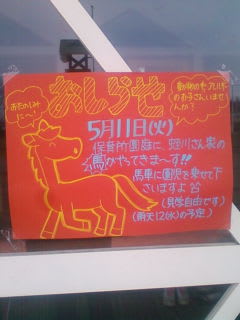 おたのしみに〜!
おしらせ
動物の毛アレルギーのお子さんいませんか?
5月11日(火)
保育所園庭に、蛭川さん家の
馬がやってきま〜す!!
馬車に園児を乗せて下さいますよ
(見学自由です)
(雨天12(水)の予定)